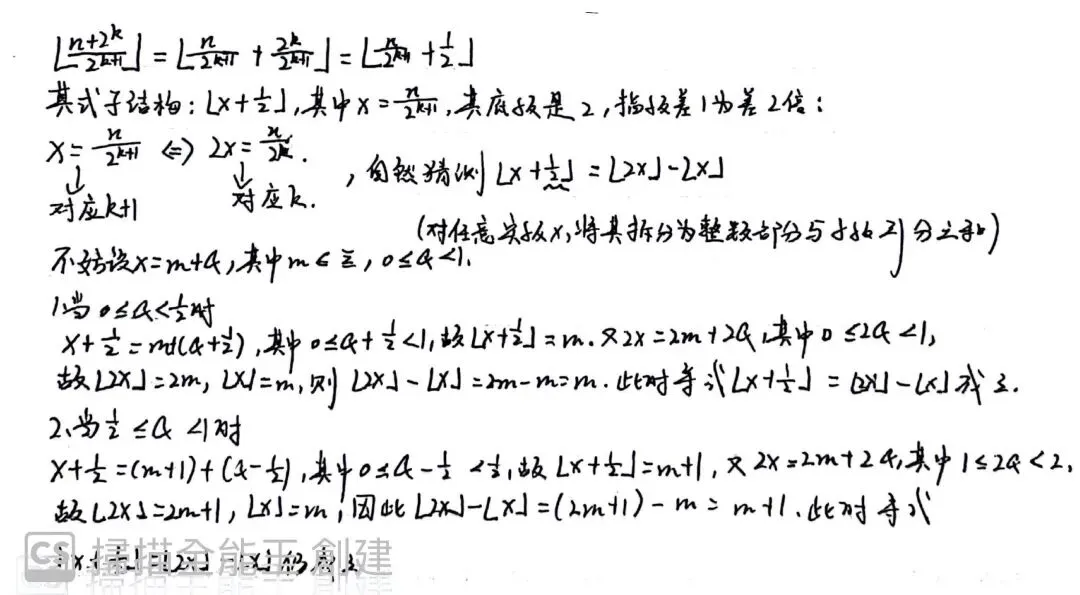 ⌊(n+2^k)/2^{k+1}⌋ = ⌊n/2^{k+1} + 2^k/2^{k+1}⌋ = ⌊n/2^{k+1} + 1/2⌋
其式子结构: ⌊x+1/2⌋, 其中 x = n/2^{k+1}, 其底数是2, 指数差1为差2倍:
x = n/2^{k+1} ⇔ 2x = n/2^k.
↓ ↓
对应k+1 对应k.
, 自然猜测 ⌊x+1/2⌋ = ⌊2x⌋-⌊x⌋
(对任意实数x, 将其拆分为整数部分与小数部分之和)
不妨设x=m+a, 其中m∈Z, 0≤a<1.
1.当 0≤a<1/2时
x+1/2=m+(a+1/2), 其中 0≤a+1/2<1, 故⌊x+1/2⌋=m. 又2x=2m+2a, 其中0≤2a<1,
故⌊2x⌋=2m, ⌊x⌋=m, 则 ⌊2x⌋-⌊x⌋=2m-m=m. 此时等式⌊x+1/2⌋=⌊2x⌋-⌊x⌋成立.
2.当1/2≤a<1时
x+1/2=(m+1)+(a-1/2), 其中0≤a-1/2<1/2, 故⌊x+1/2⌋=m+1, 又2x=2m+2a, 其中1≤2a<2,
故⌊2x⌋=2m+1, ⌊x⌋=m, 因此⌊2x⌋-⌊x⌋=(2m+1)-m=m+1. 此时等式
⌊x+1/2⌋=⌊2x⌋-⌊x⌋仍成立
CS 掃描全能王 創建